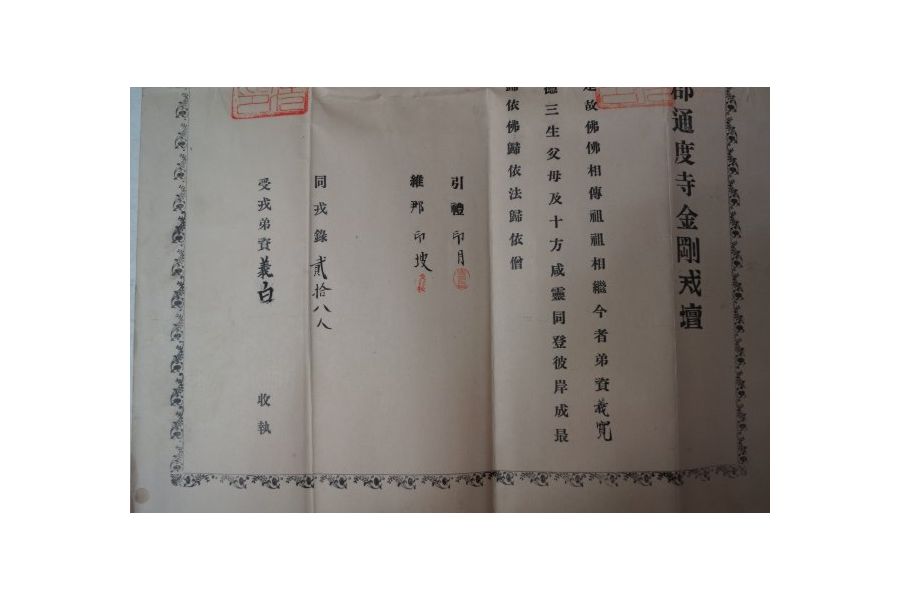 郡通度寺金剛戒壇
故佛佛相傳祖祖相繼今者弟資義寬
德三生父母及十方咸靈同登彼岸成最
歸依佛歸依法歸依僧
引禮印月
維那印
同戒錄貳拾八人
受戒弟資義白 收執